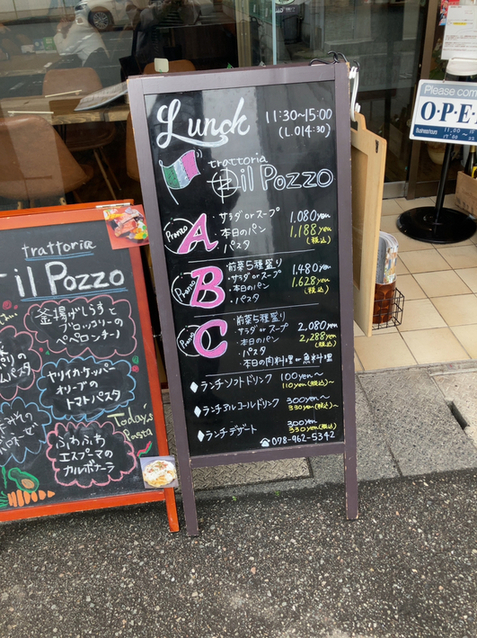 Lunch
11:30~15:00
(L.O14:30)
trattoria
il Pozzo
Pranzo
A
・サラダorスープ
・本日のパン
・パスタ
1,080yen
1,188yen
(税込)
Pranzo
B
・前菜5種盛り
・サラダorスープ
・本日のパン
・パスタ
1,480yen
1,628yen
(税込)
Pranzo
C
・前菜5種盛り
・サラダorスープ
・本日のパン
・パスタ
・本日の肉料理or魚料理
2,080yen
2,288yen
(税込)
♦ランチソフトドリンク
100yen~
110yen(税込)~
♦ランチアルコールドリンク
300yen~
330yen(税込)~
♦ランチデザート
300yen
330yen(税込)
☎078-962-5342
trattoria
il Pozzo
釜揚げしらすと
ブロッコリーの
ペペロンチーノ
ヤリイカ・ケッパー
オリーブの
トマトパスタ
Today's
Pasta
ふわふわ
エスプーマの
カルボナーラ
Please com
OPE